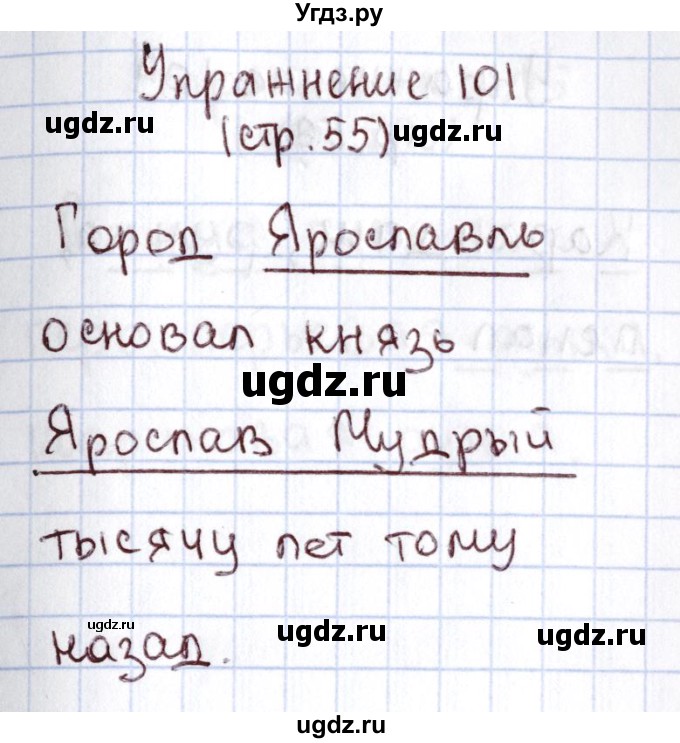 Угдз.ру
Упражнение 101
ugdz.ru (стр. 55) ugdz.ru
Город Ярославль
основал князь
ugdz.ru
Ярослав Мудрый
тысячу лет тому
ugdz.ru ugdz.ru ugdz.ru
назад.
ugdz.ru